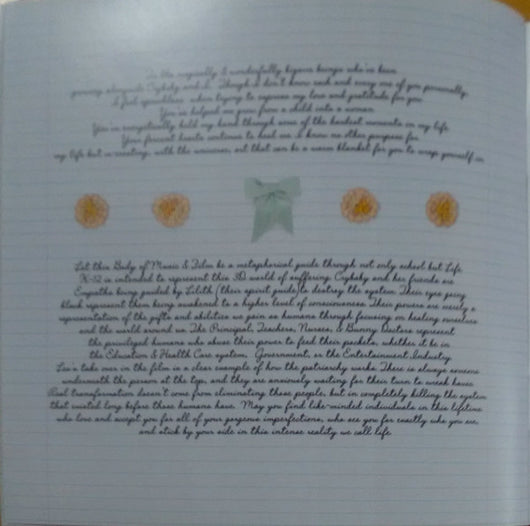 To the magically & wonderfully bizarre beings who've been
growing alongside Crybaby and I. Though I don't know each and every one of you personally,
I feel speechless when trying to express my love and gratitude for you.
You've helped me grow from a child into a woman.
You've energetically held my hand through some of the hardest moments in my life.
Your fervent hearts continue to heal me. I know no other purpose for
my life but in creating, with the universe, art that can be a warm blanket for you to wrap yourself in.
Let this Body of Music & Film be a metaphorical guide through not only school but Life.
K-12 is intended to represent this 3D world of suffering. Crybaby and her friends are
Empaths being guided by Lilith (their spirit guide) to destroy the system. Their eyes going
black represent them being awakened to a higher level of consciousness. Their powers are merely a
representation of the gifts and abilities we gain as humans through focusing on healing ourselves
and the world around us. The Principal, Teachers, Nurses, & Bunny Doctors represent
the privileged humans who abuse their power to feed their pockets, whether it be in
the Education & Health Care system, Government, or the Entertainment Industry.
Leo's take over in the film is a clear example of how the patriarchy works. There is always someone
underneath the person at the top, and they are anxiously waiting for their turn to wreak havoc.
Real transformation doesn't come from eliminating these people, but in completely killing the system
that existed long before these humans have. May you find like-minded individuals in this lifetime
who love and accept you for all of your gorgeous imperfections, who see you for exactly who you are,
and stick by your side in this intense reality we call life.